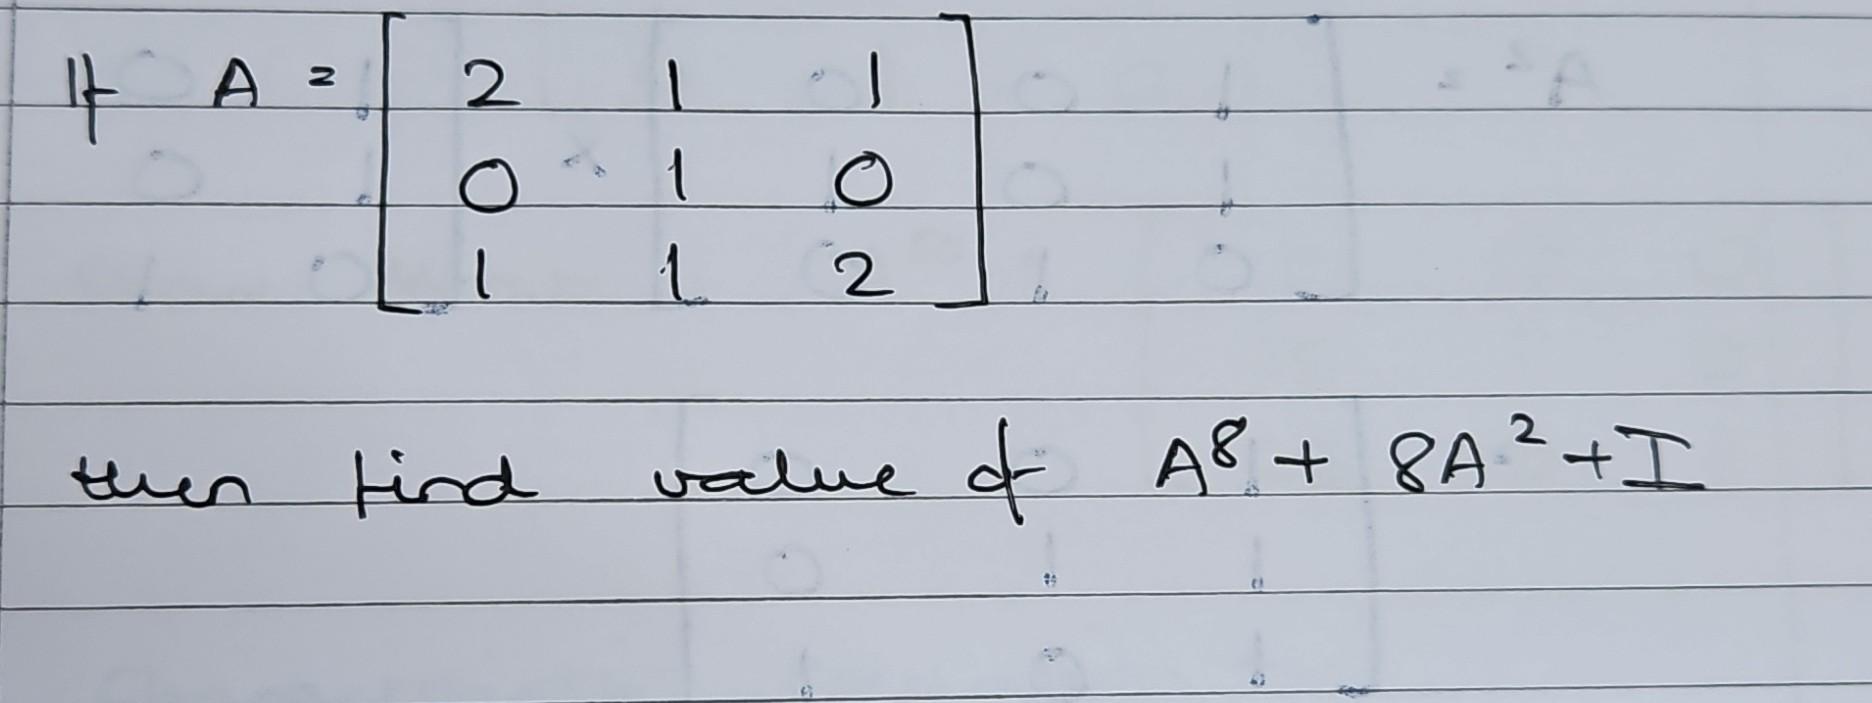 If A = [ 2 1 1
0 1 0
1 1 2 ]
then find value of A⁸ + 8A² + I